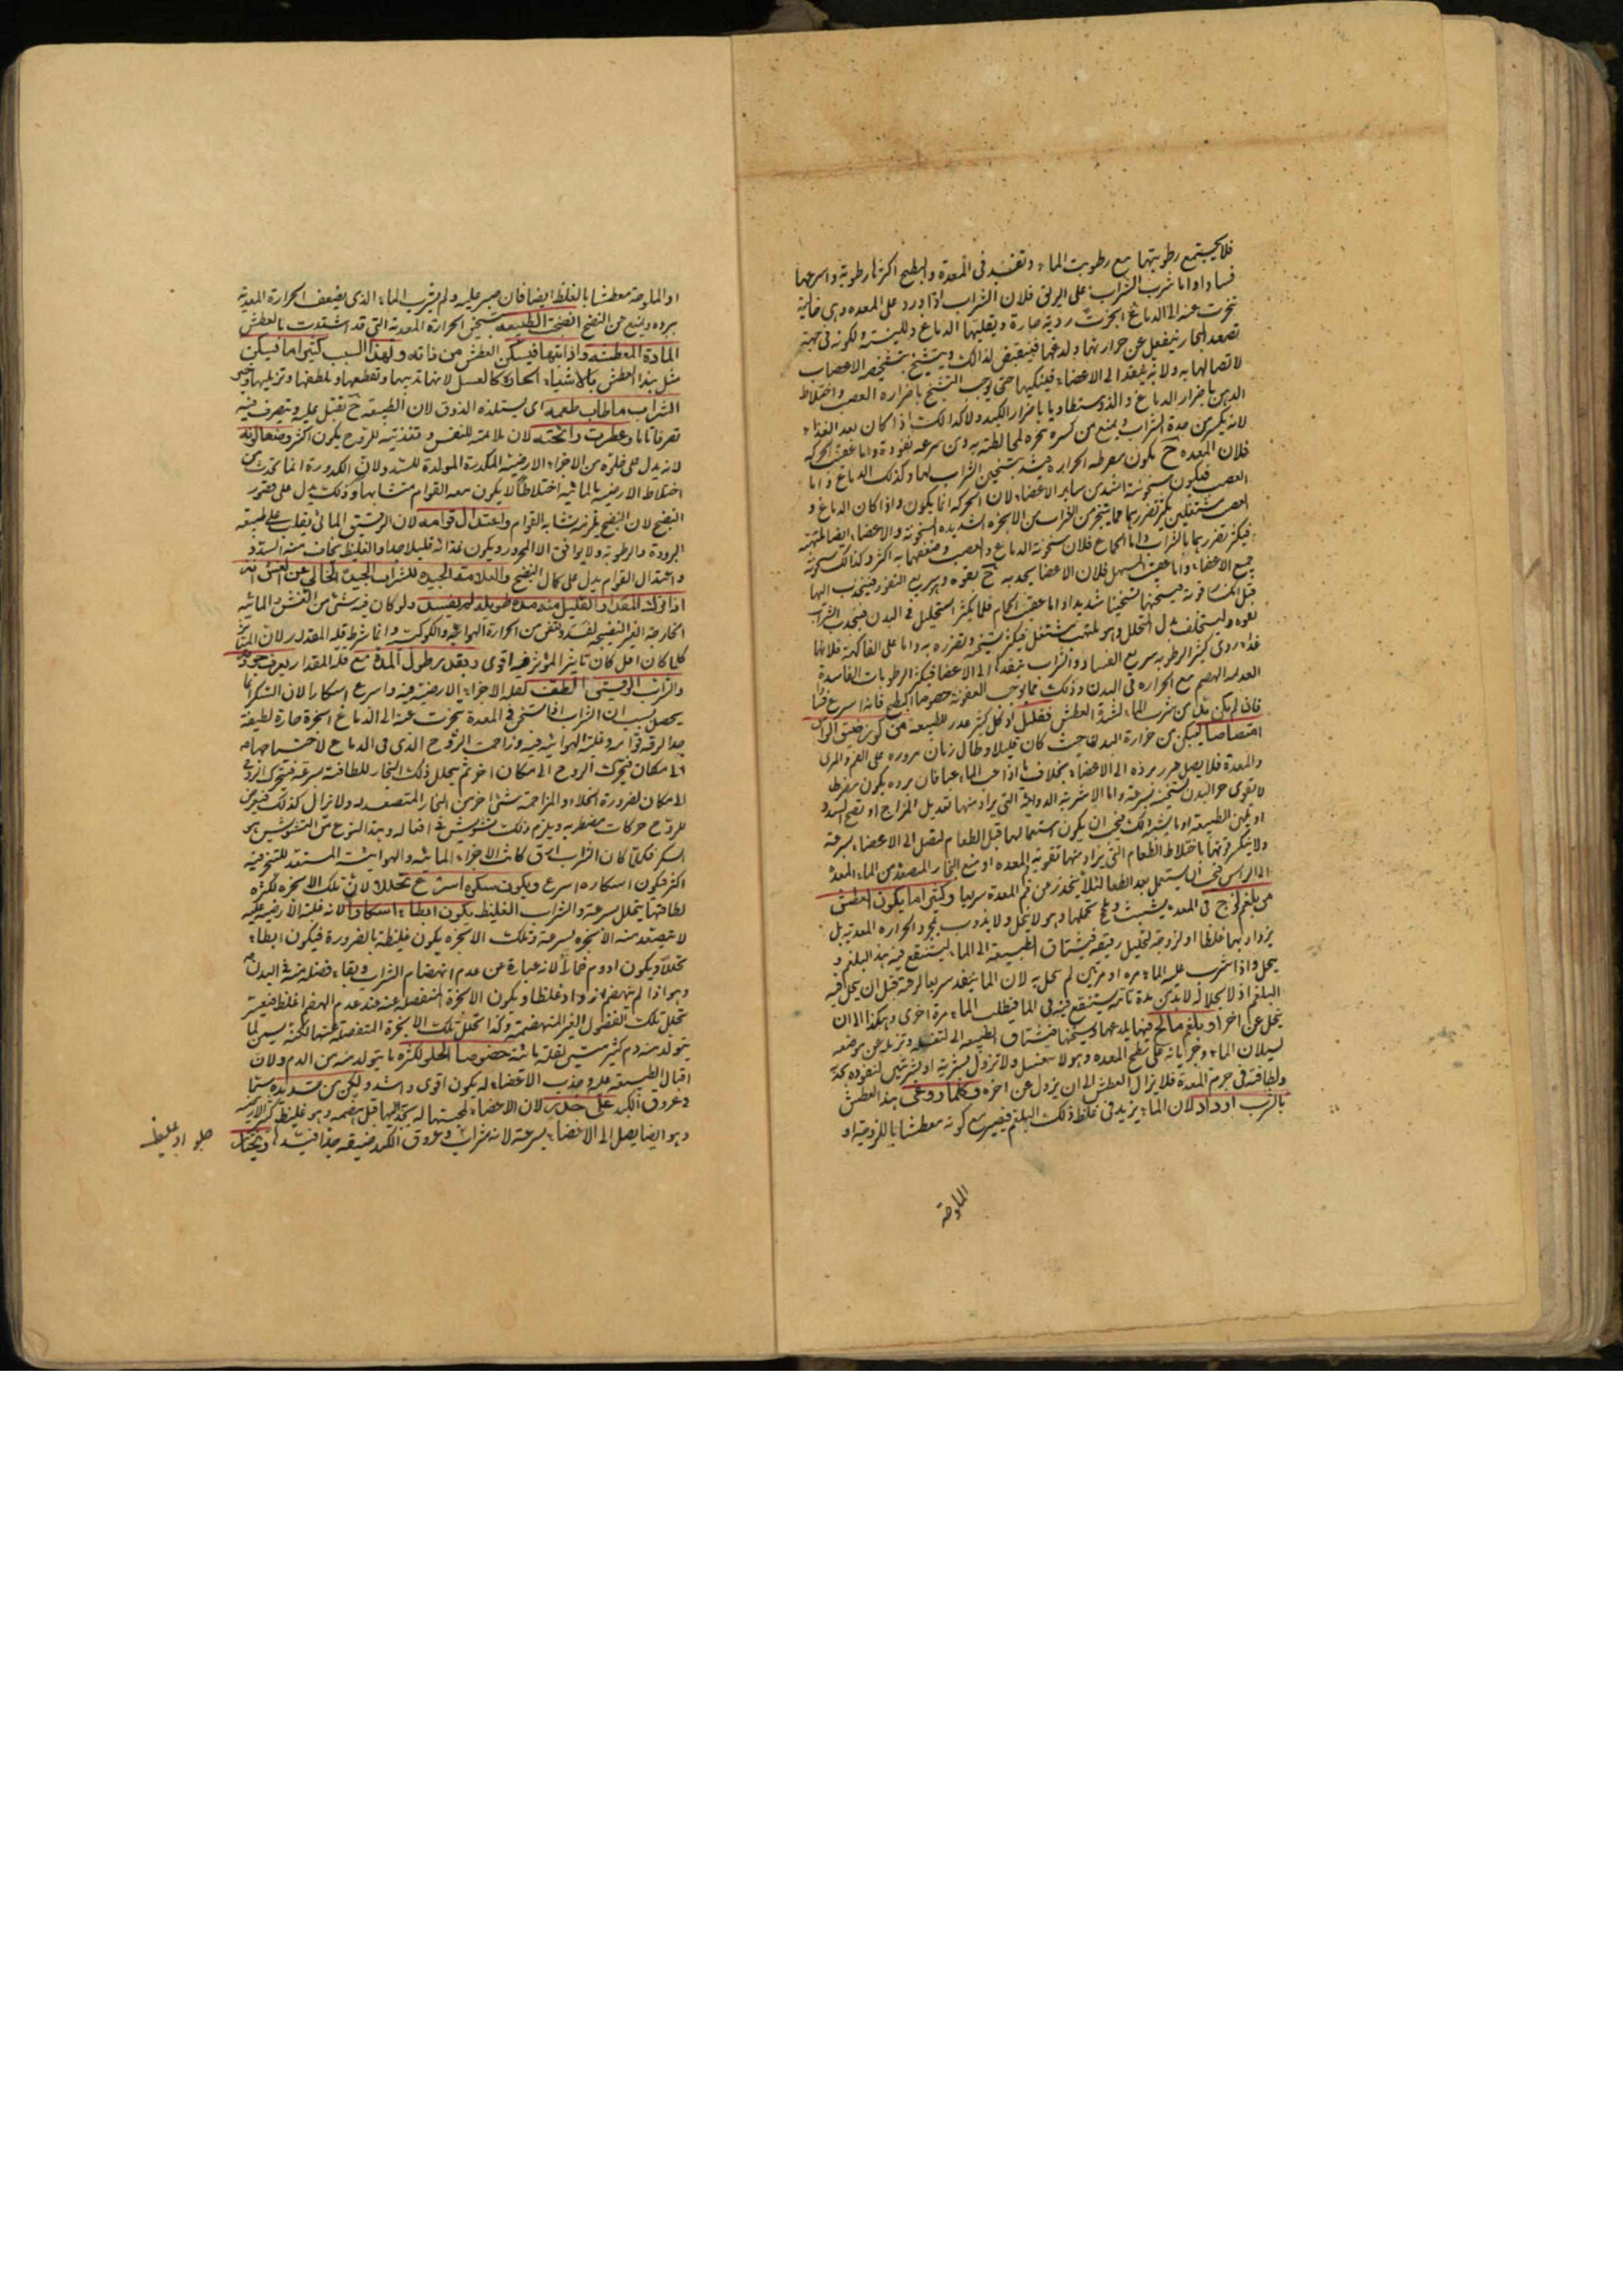 فلا يجتمع رطوبتها مع رطوبت الماء وتفسد فى المعدة والبطيخ اكثرها رطوبة واسرعها
فسادا واما شرب الشراب على الريق فلان الشراب اذا ورد على المعده وهى خالية
تبخرت عنه الى الدماغ ابخرت ردية حارة
تصعد البخار فينفعل عن حرارتها ولدغها فينقبض لذالك ويتشنج بتشنجه الاعصاب
لاتصالها به ولانه ينفذ الى الاعضاء فينكيها حتى يوجب التشنج باضراره العصب واختلاط
الذهن باضرار الدماغ بالكبد ولا كذالك اذا كان بعد الغذاء
لانه يكسر من حدة الشراب ويمنع من سرعه نفوذه واما عقيب الحركه
فلان المعده ح يكون مفرطه الحرارة فيشتد بتسخين الشراب لها وكذلك الدماغ واما
العصب فيكون سخونته اشد من ساير الاعضاء لان الحركه انما يكون واذا كان الدماغ و
العصب مشتعلين يكثر تضررهما مما يتبخر من الشراب من الابخره الشديده السخونة والاعضاء ايضا ملتهبه
فيكثر تضررها بالشراب واما الجماع فلان سخونة الدماغ والعصب وضعفهما به اكثر وكذالك سخونة
جميع الاعضاء واما عقيب المسهل فلان الاعضا يجذبه ح بقوه وهو سريع النفوذ فينجذب اليها
قبل انكسار قوته فيسخنها تسخينا شديدا واما عقيب الحمام فلما يكثر التحليل فى البدن فينجذب الشراب
بقوه وليستخلف بدل المتحلل وهو ملتهب مشتعل فيكثر تسخنه وتضرره به واما على الفاكهة فلانها
غذاء ردى كثير الرطوبه سريع الفساد والشراب ينفذها الى الاعضا فيكثر الرطوبات الفاسدة
العديمه الهضم مع الحراره فى البدن وذلك مما يوجب العفونة خصوصا البطيخ فانه اسرع فسادا
فان لم يكن بد من شرب الماء لشدة العطش فقليل من كوز ضيق الراس
امتصاصا ليسكن من حرارة البدن فحيث كان قليلا وطال زمان مروره على الفم والمرى
والمعدة فلا يصل ضرر برده الى الاعضاء بخلاف ما اذا عب الماء عبا فان برده يكون مفرطا
لا تقوى حر البدن لتسخينه بسرعة واما الاشربة الدوائية التى يراد منها تعديل المزاج او تفتيح السدد
او تليين الطبيعه او ما يشبه ذلك فيجب ان يكون استعمالها قبل الطعام لتصل الى الاعضاء بسرعة
ولا ينكسر قوتها باختلاط الطعام التى يراد منها تقوية المعده او منع البخار المتصعد من المعدة
الى الراس فيجب ان يستعمل بعد الطعام لئلا ينحدر من فم المعدة سريعا وكثيرا ما يكون العطش
من بلغم لزج فى المعده يتشبث وهو لا ينحل ولا يذوب بمجرد الحراره المعديه بل
يزداد بها غلظا ولزوجة لتحليل رقيقه فيشتاق الطبيعه الى الماء لينتقع فيه هذا البلغم و
ينحل واذا شرب عليه الماء مره او مرتين لم ينحل به لان الماء ينفذ سريعا لرقته قبل ان ينحل فيه
البلغم اذ لانحلاله لا بد من مدة تامه ليستنقع فيه فى الما فيطلب الماء مرة اخرى وهكذا الى ان
ينحل عن اخره او بلغم مالح فيها يلذعها ويسخنها فيشتاق الطبيعه الى لتغسله وتزيله عن موضعه
لسيلان الماء وجريانه على سطح المعده وهو لا ينغسل ولا تزول بشربة او شربتين لنفوذه بحدته
ولطافته فى جرم المعدة فلا يزال العطش الى ان يزول عن اخره وكلما روعى هذا العطش
بالشرب ازداد لان الماء يزيد فى غلظ ذلك البلغم فيصير مع كونه معطشا باللزوجه او
الملوحة
او الملوحة معطشا بالغلظ ايضا فان صبر عليه ولم يشرب الماء الذى يضعف الحرارة المعدية
ببرده ويمنع من النضج انضجت الطبيعه بتسخن الحرارة المعدية التى قد اشتدت بالعطش
المادة المعطشه واذابتها فيسكن العطش من ذاته ولهذا السبب كثيرا ما يسكن
مثل هذا العطش بالاشياء الحارة كالعسل لانها تذيبها وتقطعها وتلطفها وتزيلها وخير
الشراب ما طاب طعمه اى يستلذه الذوق لان الطبيعة ح تقبل عليه وتتصرف فيه
تصرفا تاما وعطرت رائحته لان ملائمته للنفس وتغذيته للروح يكون اكثر وصفا لونه
لانه يدل على خلوه من الاجزاء الارضية المكدرة المولدة للسدد ولان الكدورة انما تحدث من
اختلاط الارضية بالمائية اختلاطا لا يكون معه القوام متشابها وذلك يدل على قصور
النضج لان النضج يلزمه تشابه القوام واعتدال قوامه لان الرقيق المائى يغلب على طبيعته
البرودة والرطوبه ولا يوافق الا المحرور ويكون غذائه قليلا جدا والغليظ يخاف منه السدد
واعتدال القوام يدل على كمال النضج والعلامة الجيدة للشراب الجيد الخالى عن الغش انه
اذا ترك المقدار القليل منه مدة طويلة لم يفسد ولو كان فيه شئ من الغش والمائية
الخارجة الغير النضيجه لفسد وتعفن من الحرارة الهوائيه والكوكبيه وانما شرط قلة المقدار لان المتاثر
كلما كان اقل كان تاثير المؤثر فيه اقوى وبعضهم بطول المدة مع قلة المقدار يعرف جودته
والشراب الرقيق الطف لقلة الاجزاء الارضية فيه واسرع اسكارا لان السكر انما
يحصل بسبب ان الشراب اذا سخن فى المعدة تبخرت عنه الى الدماغ ابخرة حارة لطيفة
جدا لرقة قوامه وغلبة الهوائيه فيه وزاحمت الروح الذى فى الدماغ لاحتياجها
الى مكان فيتحرك الروح الى مكان اخر ثم يتحلل ذلك البخار للطافته بسرعة فيتحرك الروح
الى مكان لضرورة الخلاء والمزاحمة شئ اخر من البخار المتصعد له ولا يزال كذلك فيعرض
للروح حركات مضطربه ويلزم ذلك تشويش فى افعاله وهذا النوع من التشويش هو
السكر فكلما كان الشراب ارق كانت الاجزاء المائيه والهوائية المستعد للتبخر فيه
اكثر فيكون اسكاره اسرع ويكون سكره اسرع تحللا لان تلك الابخره لكثرة
لطافتها يتحلل بسرعة والشراب الغليظ يكون ابطاء اسكارا لانه لغلبة الارضية عليه
لا يتصعد منه الابخره بسرعة وتلك الابخره يكون غليظة بالضرورة فيكون ابطاء
تحللا ويكون ادوم خمارا لانه عبارة عن عدم انهضام الشراب وبقاء فضلة منه فى البدن
وهو اذا لم ينهضم ازداد غلظا ويكون الابخرة المنفصله عنه عند عدم الهضم اغلظ فيعسر
تحلل تلك الفضول الغير المنهضمة وكذا تحلل تلك الابخرة المنفصلة عنها لكنه يسمن لما
يتولد منه دم كثير متين لقلة مائيته خصوصا الحلو لكثرة ما يتولد منه من الدم ولان
اقبال الطبيعة عليه وجذب الاعضاء له يكون اقوى واشد وليكن من تسديده سيما
فى عروق الكبد على حذر لان الاعضاء لمحبتها له يجذبه اليها قبل هضمه وهو غليظ كثير الارضية
وهو ايضا يصل الى الاعضاء بسرعة لانه شراب وعروق الكبد ضيقه جدا فيسدها ويختار
حلو او غليظ